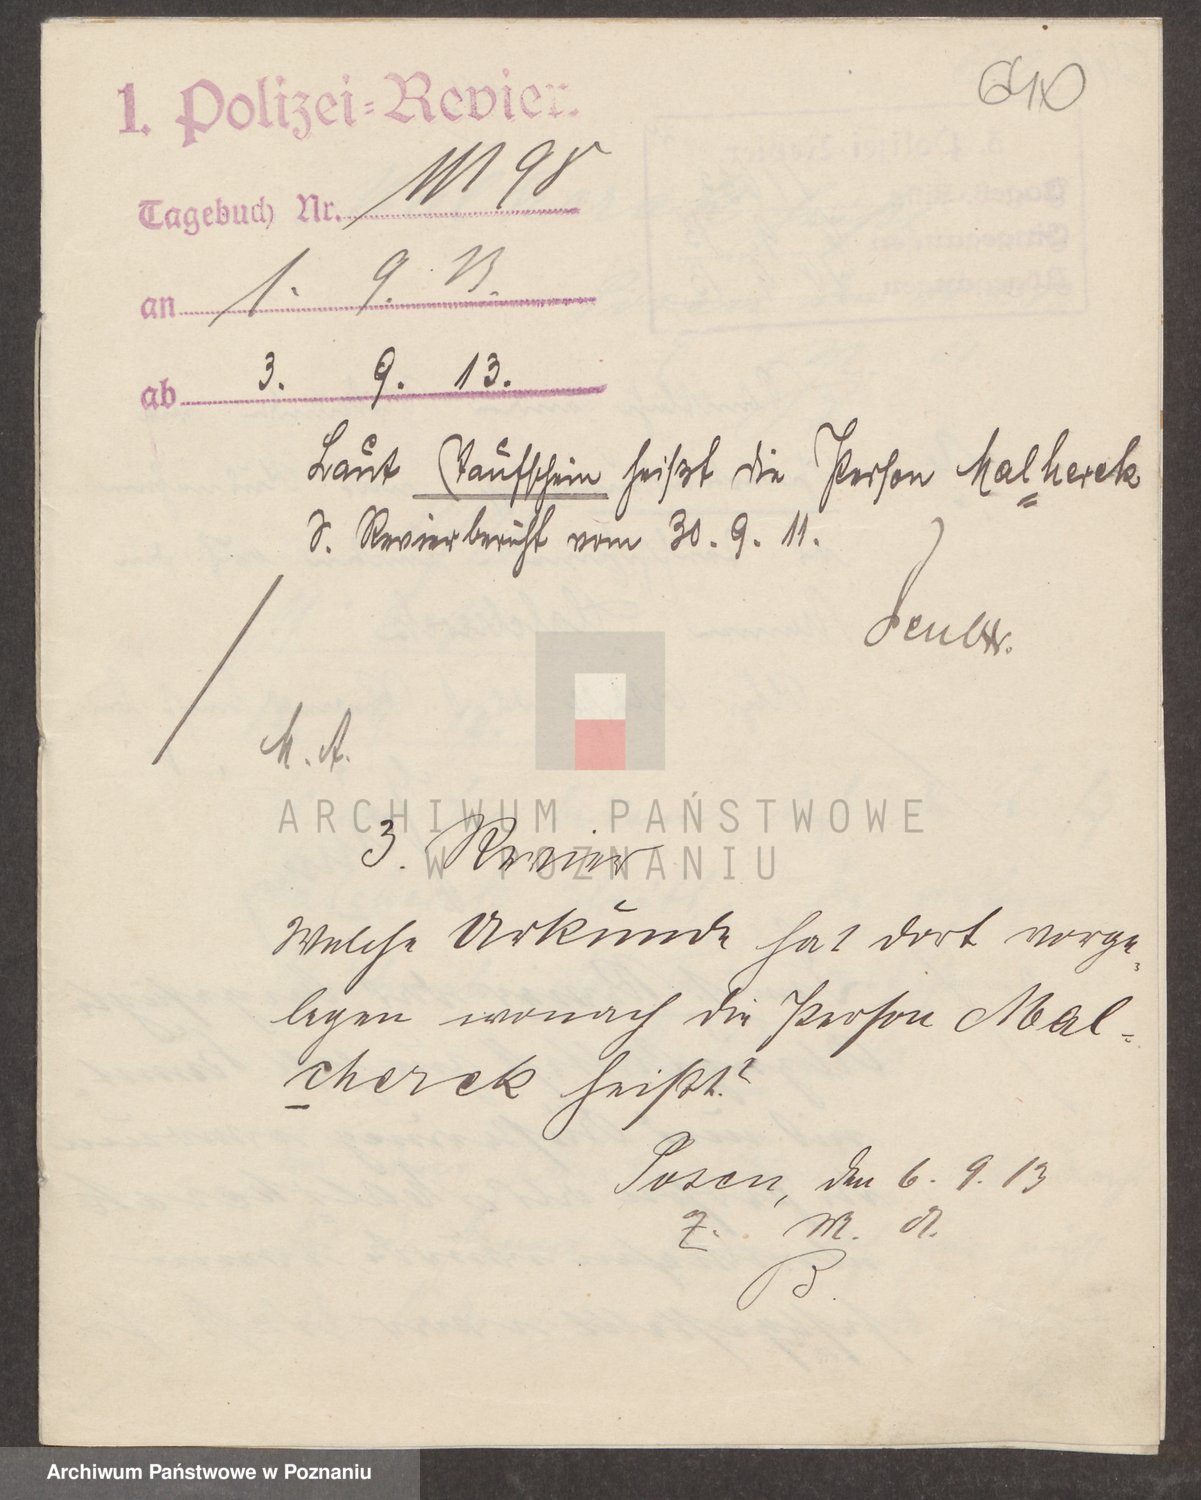 640
1. Polizei-Revier.
Tagebuch Nr. 98
an 1. 9. 13.
ab 3. 9. 13.
Laut Taufschein heißt die Person Malherek
S. Revierbericht vom 30. 9. 11.
M. A.
ARCHIWUM PAŃSTWOWE
W POZNANIU
3. Revier
Welche Urkunde hat dort vorge-
legen wonach die Person Mal-
cherek heißt?
Posen, den 6. 9. 13
Z. M. A.
B.
Archiwum Państwowe w Poznaniu